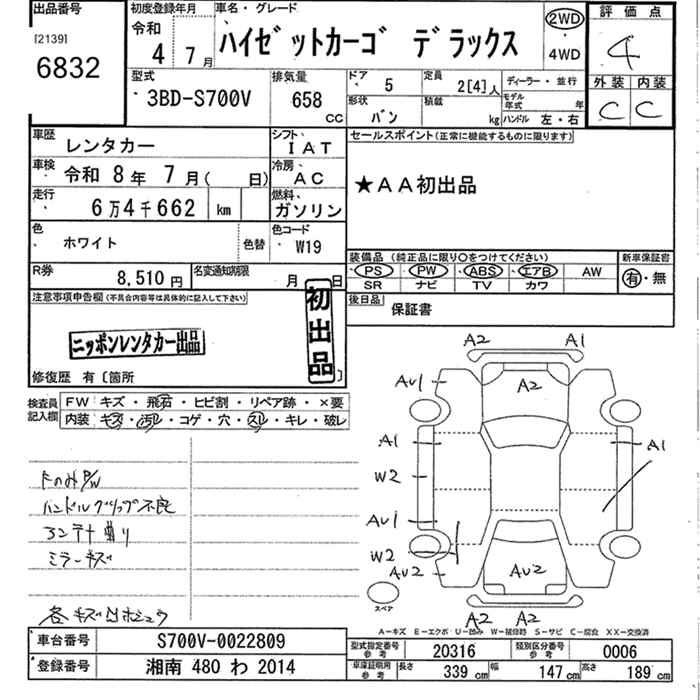 出品番号
[2139]
6832
初度登録年月
令和
4 7月
車名・グレード
ハイゼットカーゴ デラックス
2WD
4WD
評価点
4
外装 内装
C C
型式
3BD-S700V
排気量
658
CC
ドア 5
形状 バン
定員 2[4]人
積載 kg
ディーラー・並行
モデル年式 年
ハンドル 左・右
車歴 レンタカー
シフト IAT
セールスポイント(正常に機能するものに限ります)
★AA初出品
車検 令和 8年 7月( 日)
冷房 AC
走行 6万4千662 km
燃料 ガソリン
色 ホワイト
色替
色コード W19
装備品(純正品に限り○をつけてください)
PS PW ABS エアB AW
SR ナビ TV カワ
新車保証書
有・無
R券 8,510円
名変通知期限 月 日
後日品 保証書
注意事項申告欄(不具合内容等は具体的に記入して下さい)
初出品
ニッポンレンタカー出品
修復歴 有〔箇所 〕
検査員記入欄
FW キズ・飛石・ヒビ割・リペア跡・×要
内装 キズ・汚レ・コゲ・穴・スレ・キレ・破レ
FのみP/W
ハンドルグリップ不良
アンテナ曲り
ミラーキズ
各キズ凹ホシュウ
A2 A1
AU1 A2
A1 A1
W2
AU1
W2
AU2 AU2
A2 A2
スペア
A-キズ E-エクボ U-凹み W-補修跡 S-サビ C-腐食 XX-交換済
車台番号 S700V-0022809
登録番号 湘南 480 わ 2014
型式指定番号 参考 20316
類別区分番号 参考 0006
車庫証明用 参考 長さ 339cm 幅 147cm 高さ 189cm